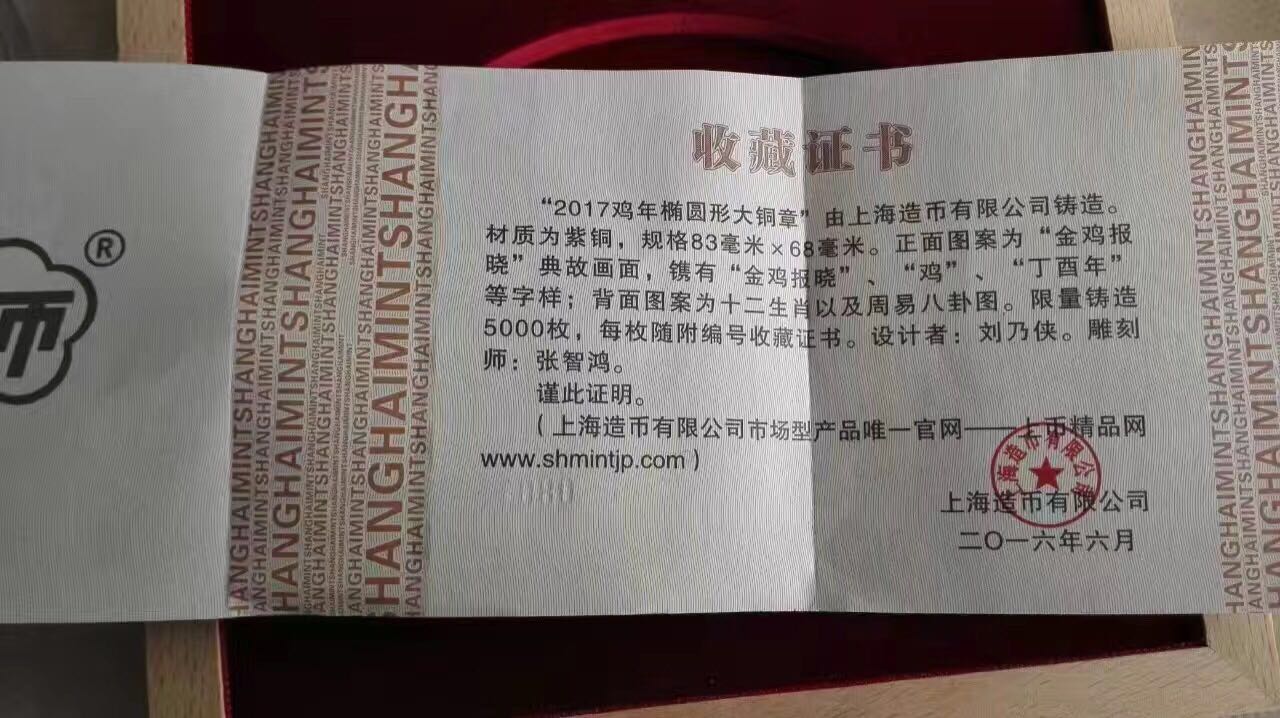 币
®
收藏证书
“2017鸡年椭圆形大铜章”由上海造币有限公司铸造。
材质为紫铜，规格83毫米×68毫米。正面图案为“金鸡报
晓”典故画面，镌有“金鸡报晓”、“鸡”、“丁酉年”
等字样；背面图案为十二生肖以及周易八卦图。限量铸造
5000枚，每枚随附编号收藏证书。设计者：刘乃侠。雕刻
师：张智鸿。
谨此证明。
（上海造币有限公司市场型产品唯一官网——上币精品网
www.shmintjp.com）
上海造币有限公司
上海造币有限公司
二〇一六年六月
SHANGHAIMINTSHANGHAIMINT